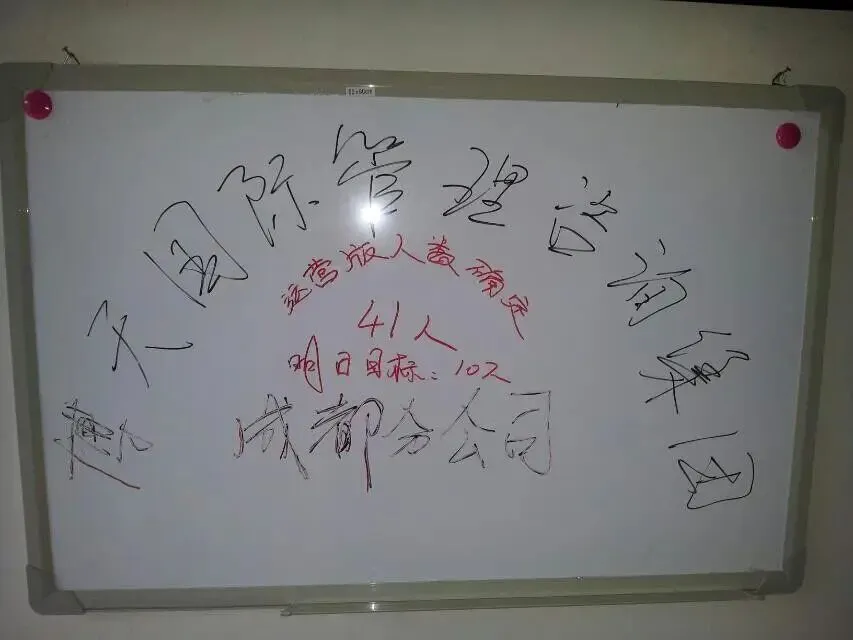 国际管理咨询集团
经营版人数确定
41人
明日目标：10人
成都分公司